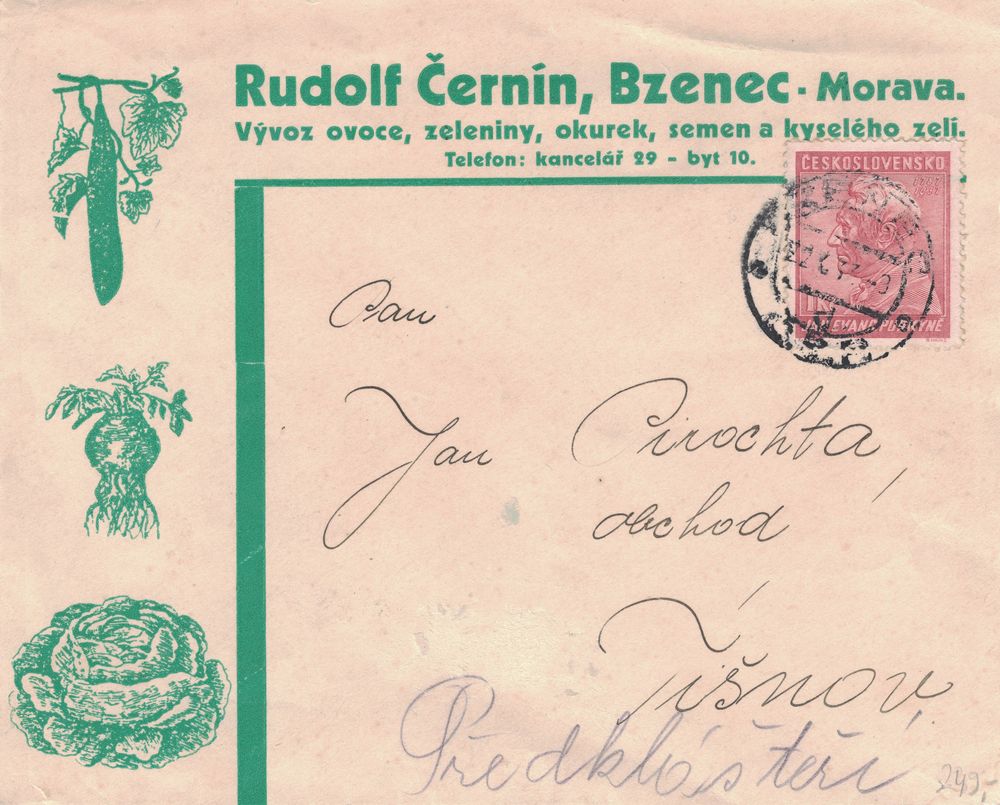 Rudolf Černín, Bzenec - Morava.
Vývoz ovoce, zeleniny, okurek, semen a kyselého zelí.
Telefon: kancelář 29 - byt 10.
ČESKOSLOVENSKO
JAN EVANG. PURKYNĚ
Pan
Jan Pirochta,
obchod
Tišnov
Předkláštěří
249,-